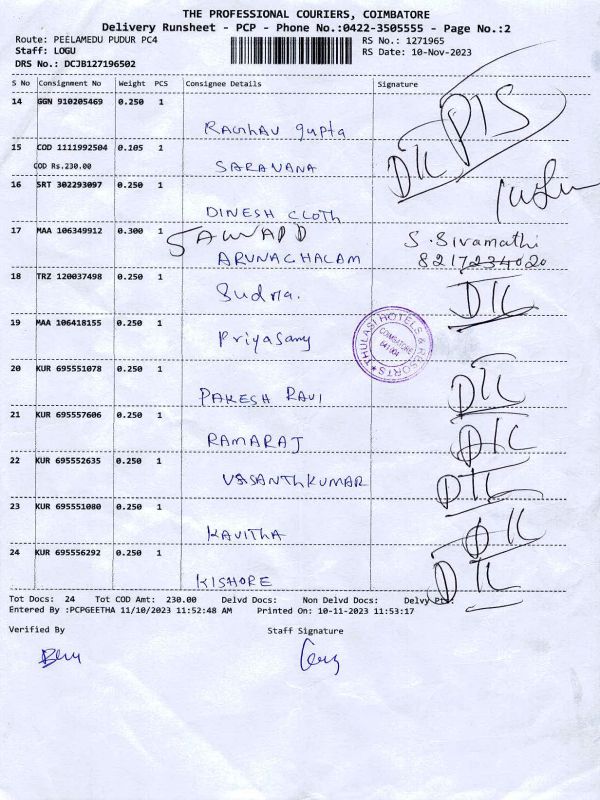 THE PROFESSIONAL COURIERS, COIMBATORE
Delivery Runsheet - PCP - Phone No.:0422-3505555 - Page No.:2
Route: PEELAMEDU PUDUR PC4 RS No.: 1271965
Staff: LOGU RS Date: 10-Nov-2023
DRS No.: DCJB127196502
S No Consignment No Weight PCS Consignee Details Signature
14 GGN 910205469 0.250 1
Raghav gupta
DIL PIS
15 COD 1111992504 0.105 1
COD Rs.230.00 SARAVANA
16 SRT 302293097 0.250 1
DINESH CLOTH
17 MAA 106349912 0.300 1
ARUNACHALAM
S. Sivamathi
8217234020
18 TRZ 120037498 0.250 1
Sudha. DIL
19 MAA 106418155 0.250 1
Priyasamy
THULASI HOTELS & RESORTS
COIMBATORE
641 004
20 KUR 695551078 0.250 1
RAKESH RAVI DIL
21 KUR 695557606 0.250 1
RAMARAJ DIL
22 KUR 695552635 0.250 1
VASANTHKUMAR DIL
23 KUR 695551080 0.250 1
KAVITHA DIL
24 KUR 695556292 0.250 1
KISHORE DIL
Tot Docs: 24 Tot COD Amt: 230.00 Delvd Docs: Non Delvd Docs: Delvy Pt:
Entered By :PCPGEETHA 11/10/2023 11:52:48 AM Printed On: 10-11-2023 11:53:17
Verified By Staff Signature